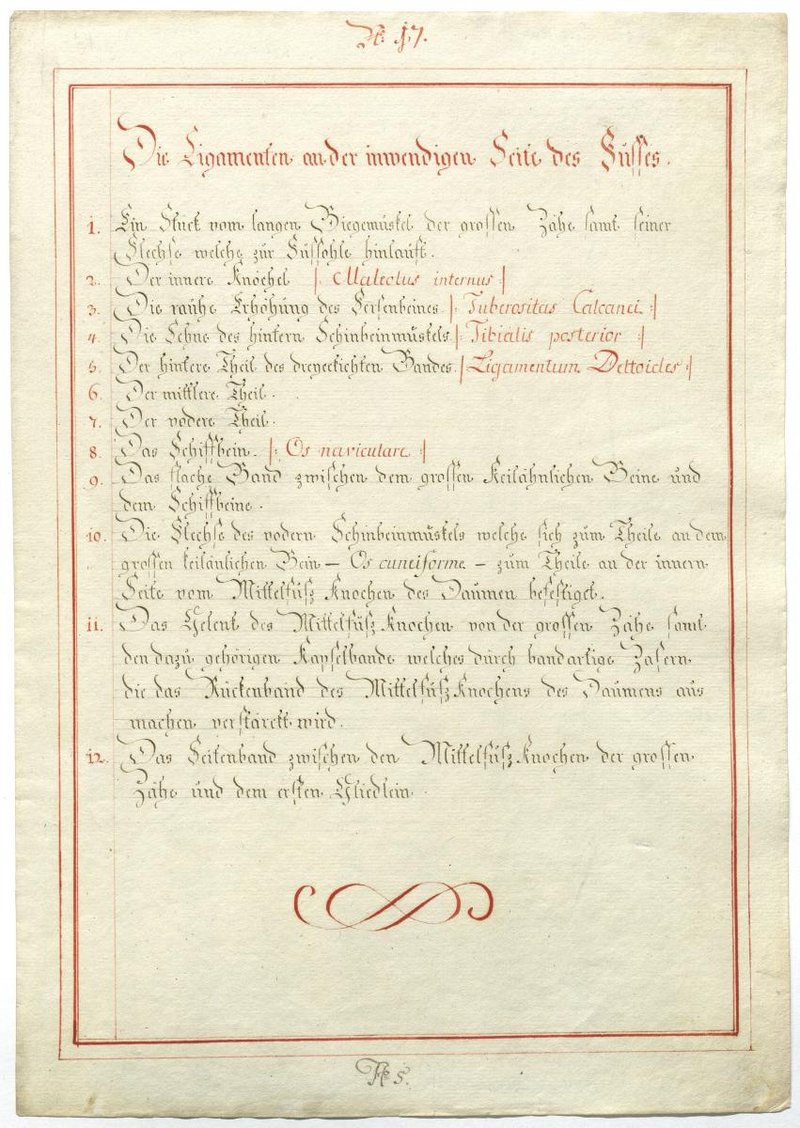 № 17.
Die Ligamenten an der inwendigen Seite des Fusses.
1. Ein Stuck vom langen Biegemuskel der grossen Zähe samt seiner
Flechse welche zür Fussohle hinlauft.
2. Der innere Knöchel |: Maleolus internus :|
3. Die raühe Erhöhüng des Fersenbeines |: Tuberositas Calcanei :|
4. Die Sehne des hintern Schinbeinmüskels |: Tibialis posterior :|
5. Der hintere Theil des dreyeckichten Bandes |: Ligamentum Deltoides :|
6. Der mittlere Theil.
7. Der vodere Theil.
8. Das Schiffbein. |: Os naviculare :|
9. Das flache Band zwischen dem grossen Keilähnlichen Beine ünd
dem Schiffbeine.
10. Die Flechse des vodern Schinbeinmüskels welche sich züm Theile an dem
grossen keilänlichen Bein — Os cuneiforme — züm Theile an der innern
Seite vom Mittelfüsz Knochen des Daumen befestiget.
11. Das Gelenk des Mittelfüsz Knochen von der grossen Zähe samt
den dazü gehörigen Kapselbande welches dürch bandartige Zasern
die das Rückenband des Mittelfüsz Knochens des Daümens aüs
machen verstärckt wird.
12. Das Seitenband zwischen den Mittelfüsz Knochen der grossen
Zähe ünd dem ersten Gliedlein.
№ 5.